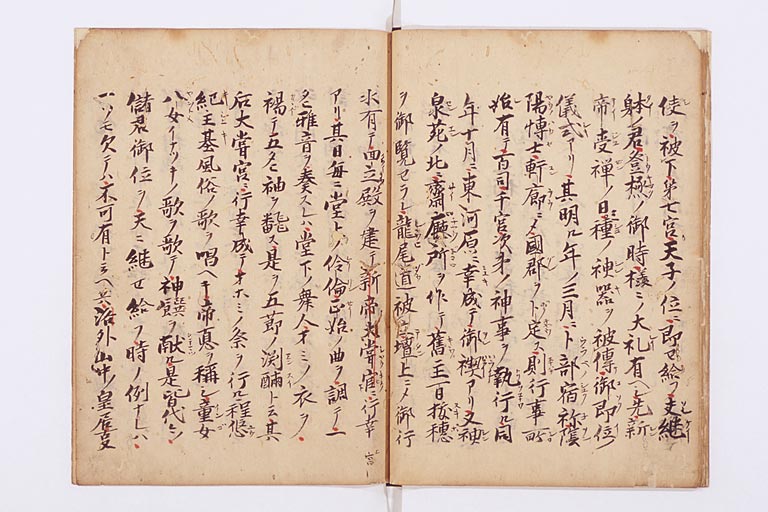 使ヲ被下第七宮天子ノ位ニ即セ給フ夫継
躰ノ君登極ノ御時様々ノ大礼有ヘシ先新
帝受禅ノ日三種ノ神器ヲ被傳御即位ノ
儀式アリ其明ル年ノ三月ニト部宿祢陰
陽博士軒廊ニメ國郡ヲト定ス則行事所
始有テ百司千官次第ノ神事ヲ執行ル同
年十月ニ東河原ニ幸成テ御禊アリ又神
泉苑ノ北ニ齋廰所ヲ作テ舊主一日抜穂
ヲ御覧セラル龍尾道被壇上ニメ御行
水有テ回立殿ヲ建テ新帝大嘗宮ニ行幸
アリ其日毎ニ堂上ノ伶倫正始ノ曲ヲ調テ一
タヒ雅音ヲ奏スレハ堂下ノ舞人オミノ衣ヲ
褐テ五タヒ袖ヲ飜ス是ヲ五節ノ渕醉ト云其
后大嘗宮ニ行幸成テオホミノ祭ヲ行ル程悠
紀主基風俗ノ歌ヲ唱ヘテ帝徳ヲ稱シ童女
八女イナツキノ歌ヲ歌テ神饌ヲ献ル是皆代々ノ
儲君御位ヲ天ニ継セ給フ時ノ例ナレハ
一ツモ欠テハ不可有ト云ヘ共洛外山中ノ皇居夏